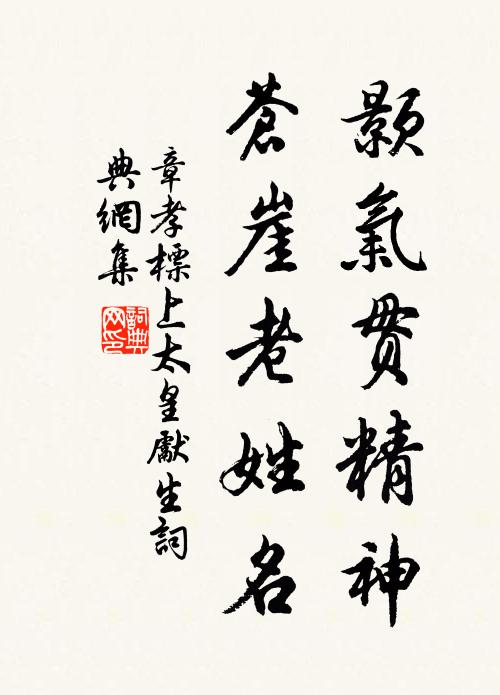 顥氣貫精神
蒼崖老姓名
章孝標上太皇獻生詞
典網集
詞典
网印